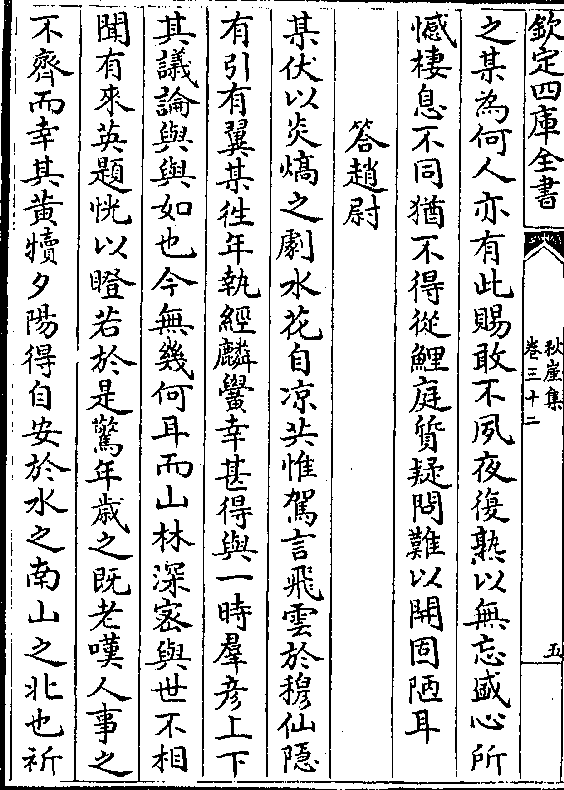 欽定四庫全書
秋崖集
卷三十二
五
之某為何人亦有此賜敢不夙夜復熟以無忘盛心所
憾棲息不同猶不得從鯉庭質疑問難以開固陋耳
答趙尉
某伏以炎熇之劇水花自凉共惟駕言飛雲於穆仙隠
有引有翼某徃年執經麟黌幸甚得與一時羣彦上下
其議論與與如也今無幾何耳而山林深宻與世不相
聞有來英題恍以瞪若於是驚年歲之既老嘆人事之
不齊而幸其黃犢夕陽得自安於水之南山之北也祈